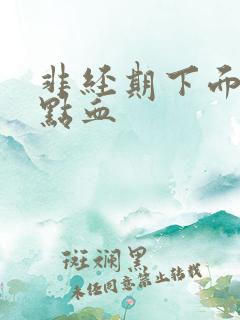 非经期下面
點血
斑斓黑
未经同意禁止转载